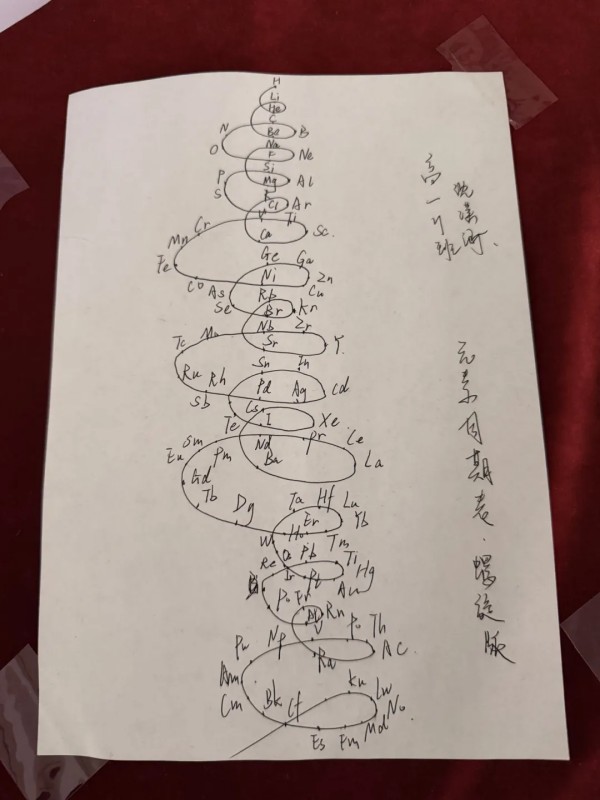 H
Li
He
C
N Be B
Na
O F Ne
Si
P Mg Al
S
Cl Ar
V Ti
Cr Ca Sc
Mn
Ge Ga
Fe Ni Zn
Co
As Rb Cu
Se Br Kr
Nb Zr
Tc Mo Sr Y
Sn In
Ru Rh Pd Ag Cd
Sb Cs
Te I Xe
Sm Nd Pr Ce
Eu Pm Ba La
Gd
Tb
Dy Ta Hf Lu
Er Yb
W Ho Tm
Re Os Pb Tl
Ir Pt Hg
Au
Po Fr Rn
Pu Np Pa Th
Ra AC
Am
Cm Ku Lw
Bk Cf No
Md
Es Fm
高一
班
元素周期表·螺旋版